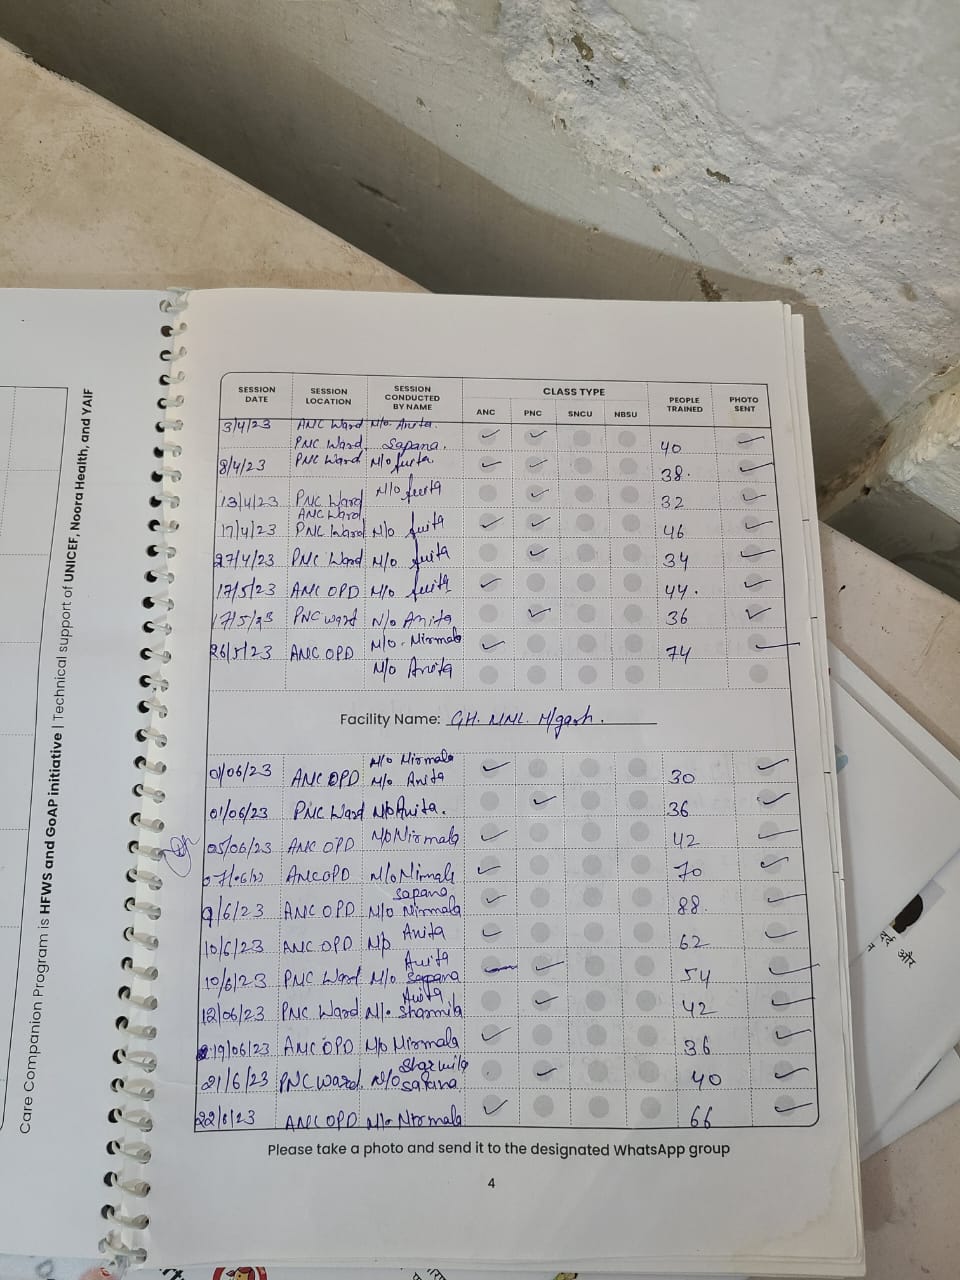 Care Companion Program is HFWS and GoAP initiative | Technical support of UNICEF, Noora Health, and YAIF
SESSION DATE SESSION LOCATION SESSION CONDUCTED BY NAME CLASS TYPE PEOPLE TRAINED PHOTO SENT
ANC PNC SNCU NBSU
3/4/23 ANC Ward N/o. Anita.
PNC Ward. Sapana. ✓ ✓ 40 ✓
8/4/23 PNC Ward N/o Anita. ✓ ✓ 38. ✓
13/4/23 PNC Ward N/o Anita ✓ 32 ✓
ANC Ward,
17/4/23 PNC Ward N/o Anita ✓ ✓ 46 ✓
27/4/23 PNC Ward N/o Anita ✓ 34 ✓
17/5/23 ANC OPD N/o Anita ✓ 44. ✓
17/5/23 PNC ward N/o Anita ✓ 36 ✓
26/5/23 ANC OPD N/o. Nirmala ✓ 74 ✓
N/o Anita
Facility Name: GH.
01/06/23 ANC OPD N/o Nirmala ✓ 30 ✓
N/o Anita
01/06/23 PNC Ward N/o Anita. ✓ 36 ✓
05/06/23 ANC OPD N/o Nirmala ✓ 42 ✓
ANC OPD N/o Nirmala ✓ 70 ✓
Sapana
9/6/23 ANC OPD N/o Nirmala ✓ 88. ✓
10/6/23 ANC OPD N/o Anita ✓ 62 ✓
Anita
10/6/23 PNC Ward N/o Sapana ✓ 54 ✓
Anita
12/06/23 PNC Ward N/o Sharmila ✓ 42 ✓
19/06/23 ANC OPD N/o Nirmala ✓ 36 ✓
Sharmila
21/6/23 PNC Ward. N/o Sapana ✓ 40 ✓
22/6/23 ANC OPD N/o Nirmala ✓ 66 ✓
Please take a photo and send it to the designated WhatsApp group
4
और